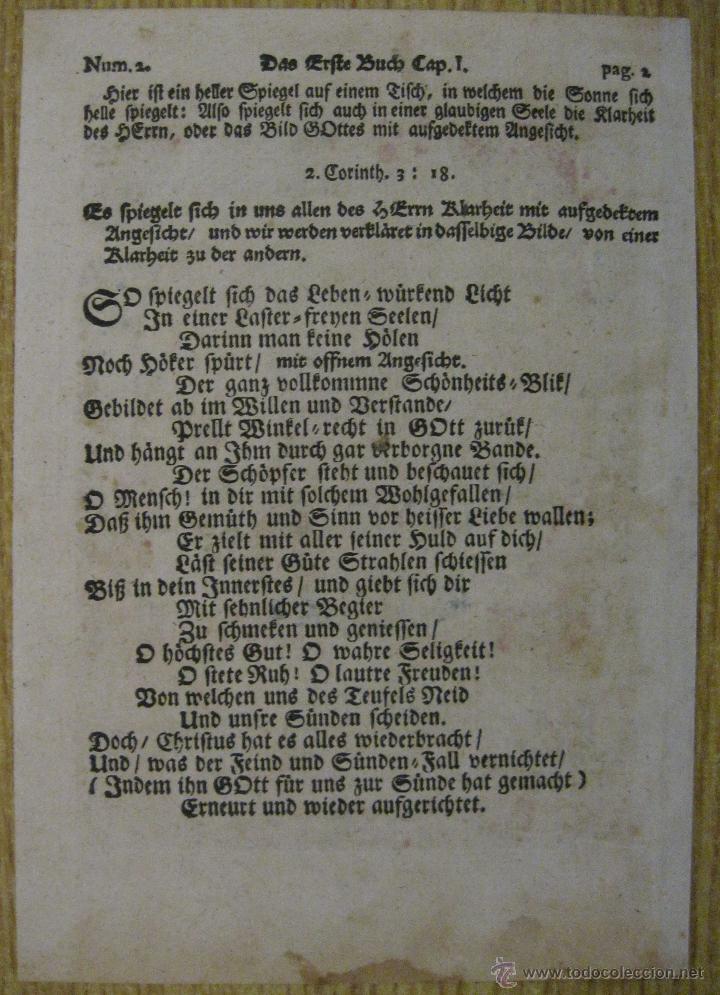 Num. 2. Das Erste Buch Cap. I. pag. 2
Hier ist ein heller Spiegel auf einem Tisch, in welchem die Sonne sich
helle spiegelt: Also spiegelt sich auch in einer glaubigen Seele die Klarheit
des HErrn, oder das Bild GOttes mit aufgedektem Angesicht.
2. Corinth. 3 : 18.
Es spiegelt sich in uns allen des HErrn Klarheit mit aufgedektem
Angesicht/ und wir werden verkläret in dasselbige Bilde/ von einer
Klarheit zu der andern.
SO spiegelt sich das Leben-würkend Licht
In einer Laster-freyen Seelen/
Darinn man keine Hölen
Noch Höker spürt/ mit offnem Angesicht.
Der ganz vollkommne Schönheits-Blik/
Gebildet ab im Willen und Verstande/
Prellt Winkel-recht in GOtt zurük/
Und hängt an Ihm durch gar verborgne Bande.
Der Schöpfer steht und beschauet sich/
O Mensch! in dir mit solchem Wohlgefallen/
Daß ihm Gemüth und Sinn vor heisser Liebe wallen;
Er zielt mit aller seiner Huld auf dich/
Läst seiner Güte Strahlen schiessen
Biß in dein Innerstes/ und giebt sich dir
Mit sehnlicher Begier
Zu schmeken und geniessen/
O höchstes Gut! O wahre Seligkeit!
O stete Ruh! O lautre Freuden!
Von welchen uns des Teufels Neid
Und unsre Sünden scheiden.
Doch/ Christus hat es alles wiederbracht/
Und/ was der Feind und Sünden-Fall vernichtet/
( Indem ihn GOtt für uns zur Sünde hat gemacht )
Erneurt und wieder aufgerichtet.
© www.todocoleccion.net